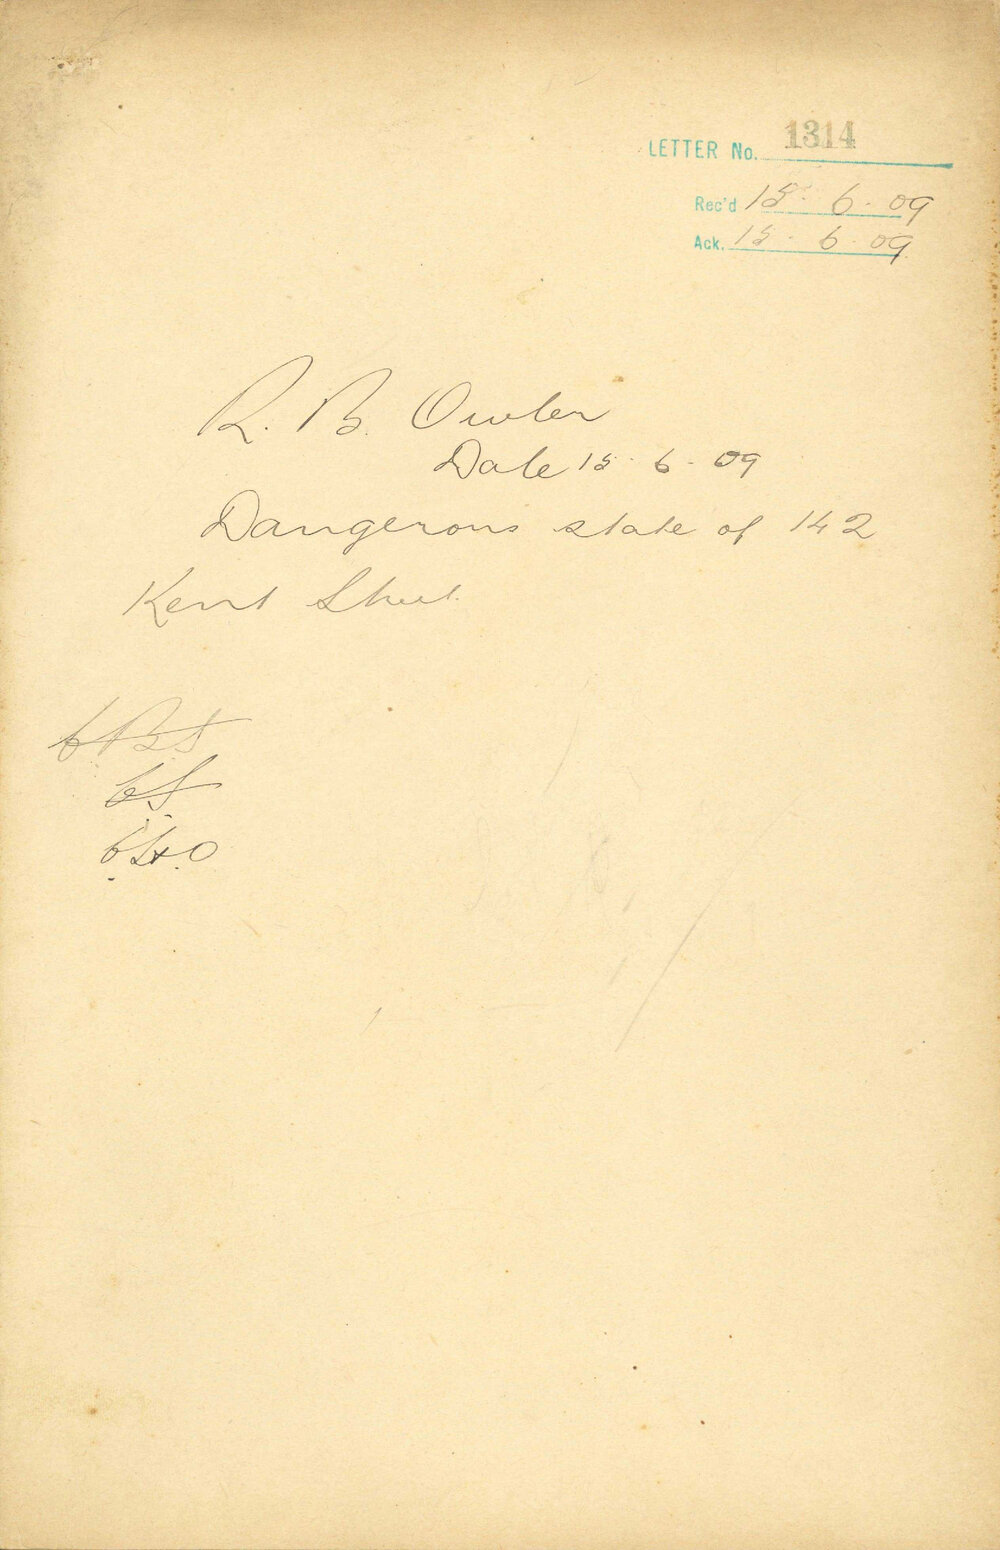 LETTER No. 1314
Rec'd 15. 6. 09
Ack. 15. 6. 09
R. B. Owler
Date 15. 6. 09
Dangerous state of 142
Kent Street.
CBS
CS.
C.H.O